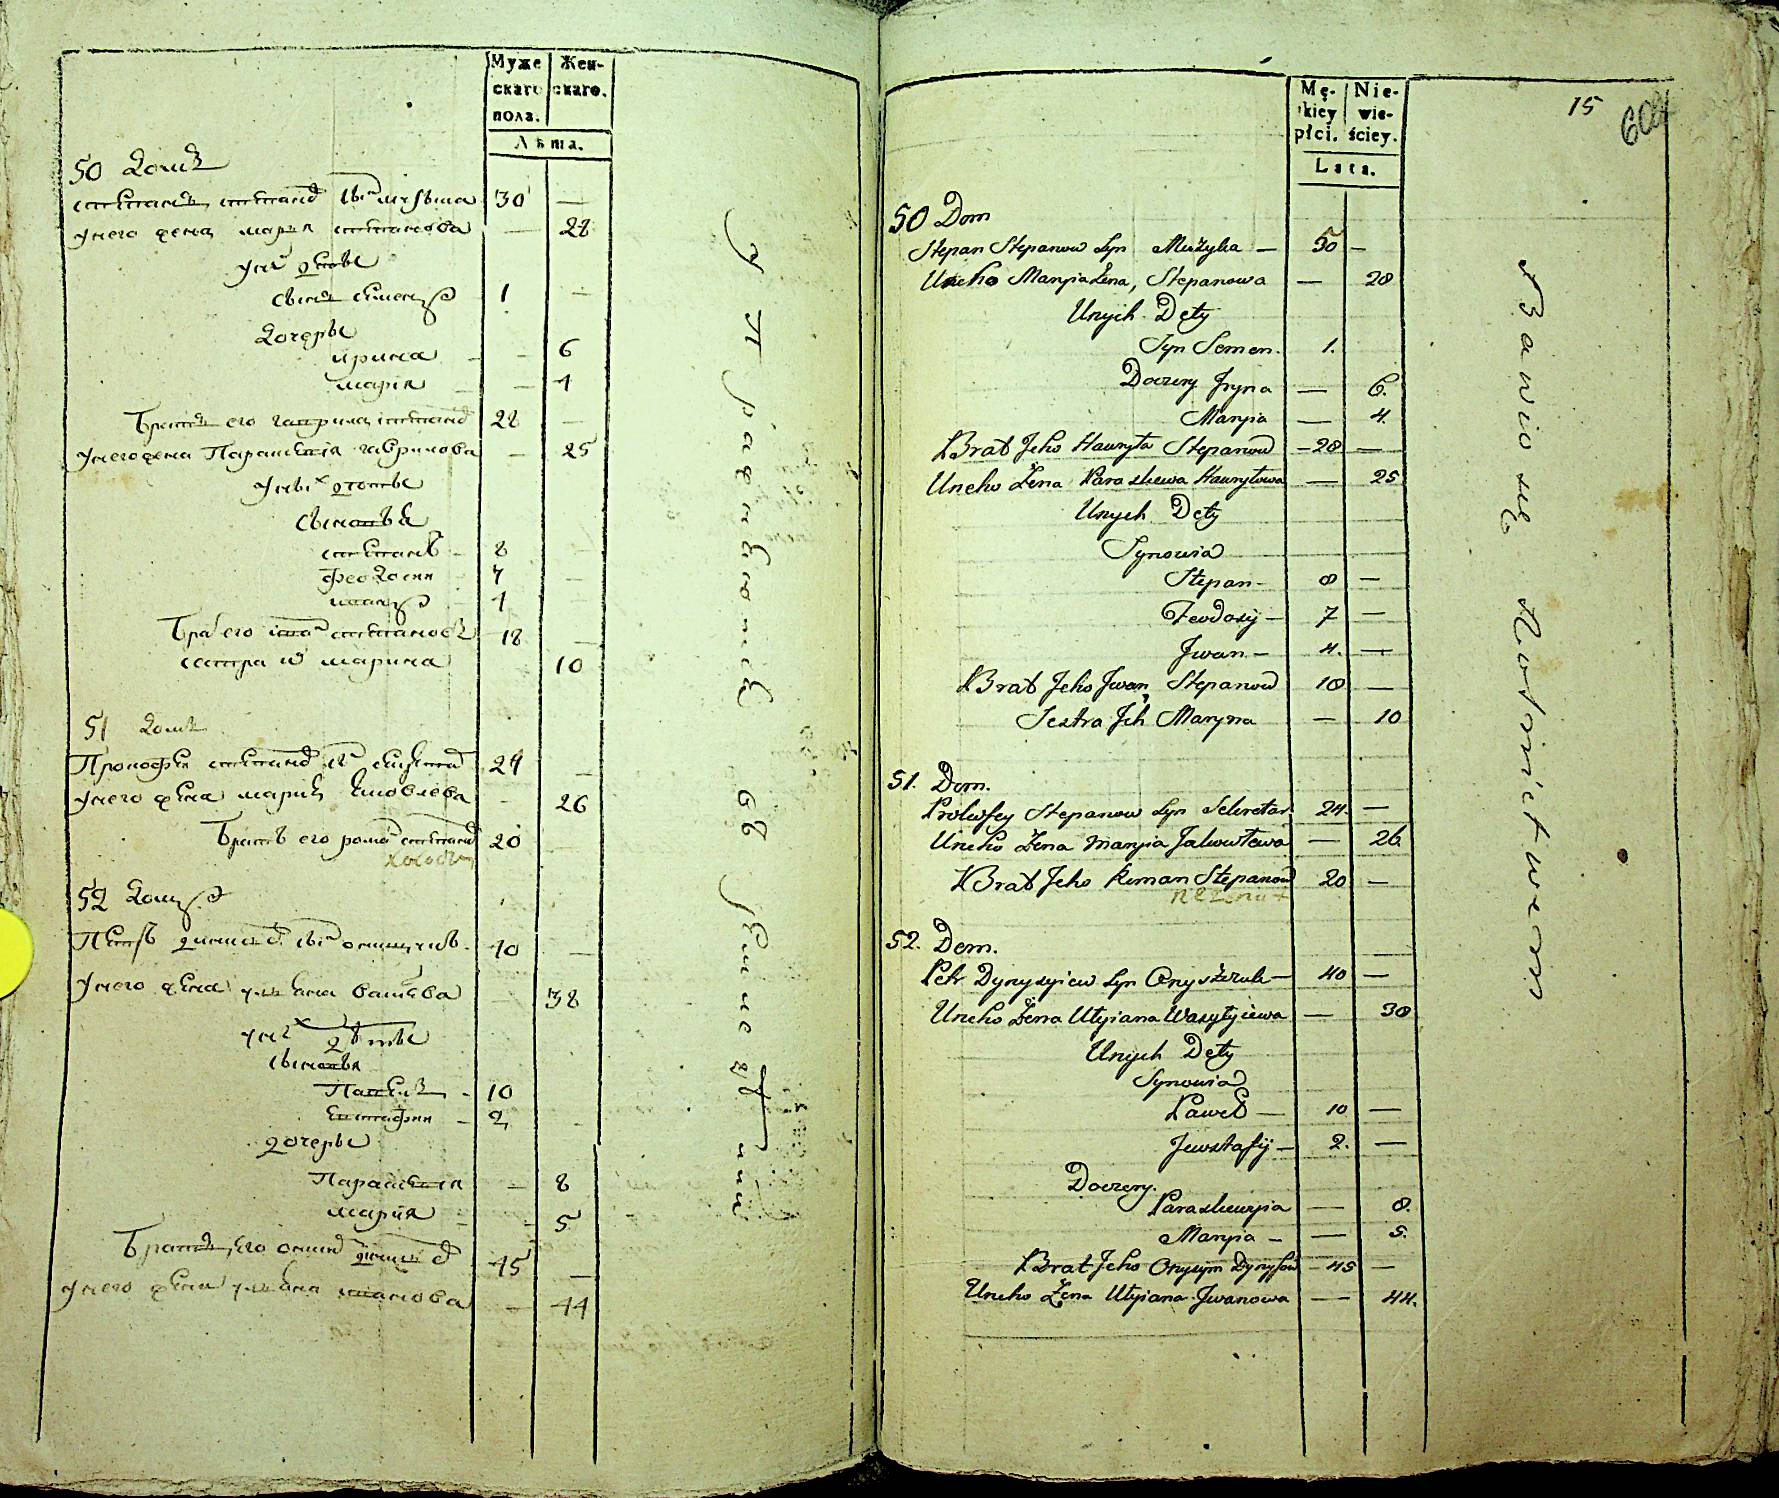 Муже Жен-
скаго скаго.
пола.
Лѣта.
50 домъ
степанъ степанов сын музыка 30 —
унего жена марія степанова — 28
уних дѣты
сынъ семенъ 1 —
дочеры
ирина — 6
марія — 4
Братъ его гаврила степанов 28 —
унего жена Параскевія гаврилова — 25
уныхъ дѣты
сыновья
степанъ 8
феодосии 7
иванъ 4
Брат его иван степановъ 18 —
сестра их марина 10
51 домъ
Прокофеи степанов сын секретар 24 —
унего жена марія яковлева — 26
Братъ его роман степанов 20
холостъ
52 домъ
Петръ денисиев сын онищукъ 40 —
унего жена улияна василева — 38
уних дѣты
сыновья
Павелъ 10
евстафии 2
дочеры
Параскевія — 8
марія — 5
Братъ его онисим денисиев 45 —
унего жена улияна иванова — 44
Упражняются въ
Mę- Nie-
kiey wie-
płci. ściey.
Lata.
15
604
50 Dom
Stepan Stepanow Syn Muzyka — 30 —
Uneho Maryia Żena, Stepanowa — 28
Unych Dety
Syn Semen. 1.
Doczery Jryna — 6.
Maryia — 4.
Brat Jeho Hawryła Stepanow — 28 —
Uneho Żena Paraskewa Hawryłowa — 25
Unych Dety
Synowia
Stepan — 8 —
Feodosij — 7 —
Jwan — 4. —
Brat Jeho Jwan Stepanow 18 —
Sestra Jch Maryna — 10
51. Dom.
Prokofey Stepanow Syn Sekretar. 24. —
Uneho Żena Maryia Jakowlewa — 26.
Brat Jeho Roman Stepanow 20 —
nieżenat
52. Dom.
Petr Dynysyiew Syn Onyszczuk — 40 —
Uneho Żena Ulyiana Wasylyiewa — 38
Unych Dety
Synowia
Paweł — 10 —
Jewstafij — 2. —
Doczery.
Paraskewyia — 8.
Maryia — — 5.
Brat Jeho Onysym Dynysow — 45 —
Uneho Żena Ulyiana Jwanowa — 44.
Bawio się Rolnictwem